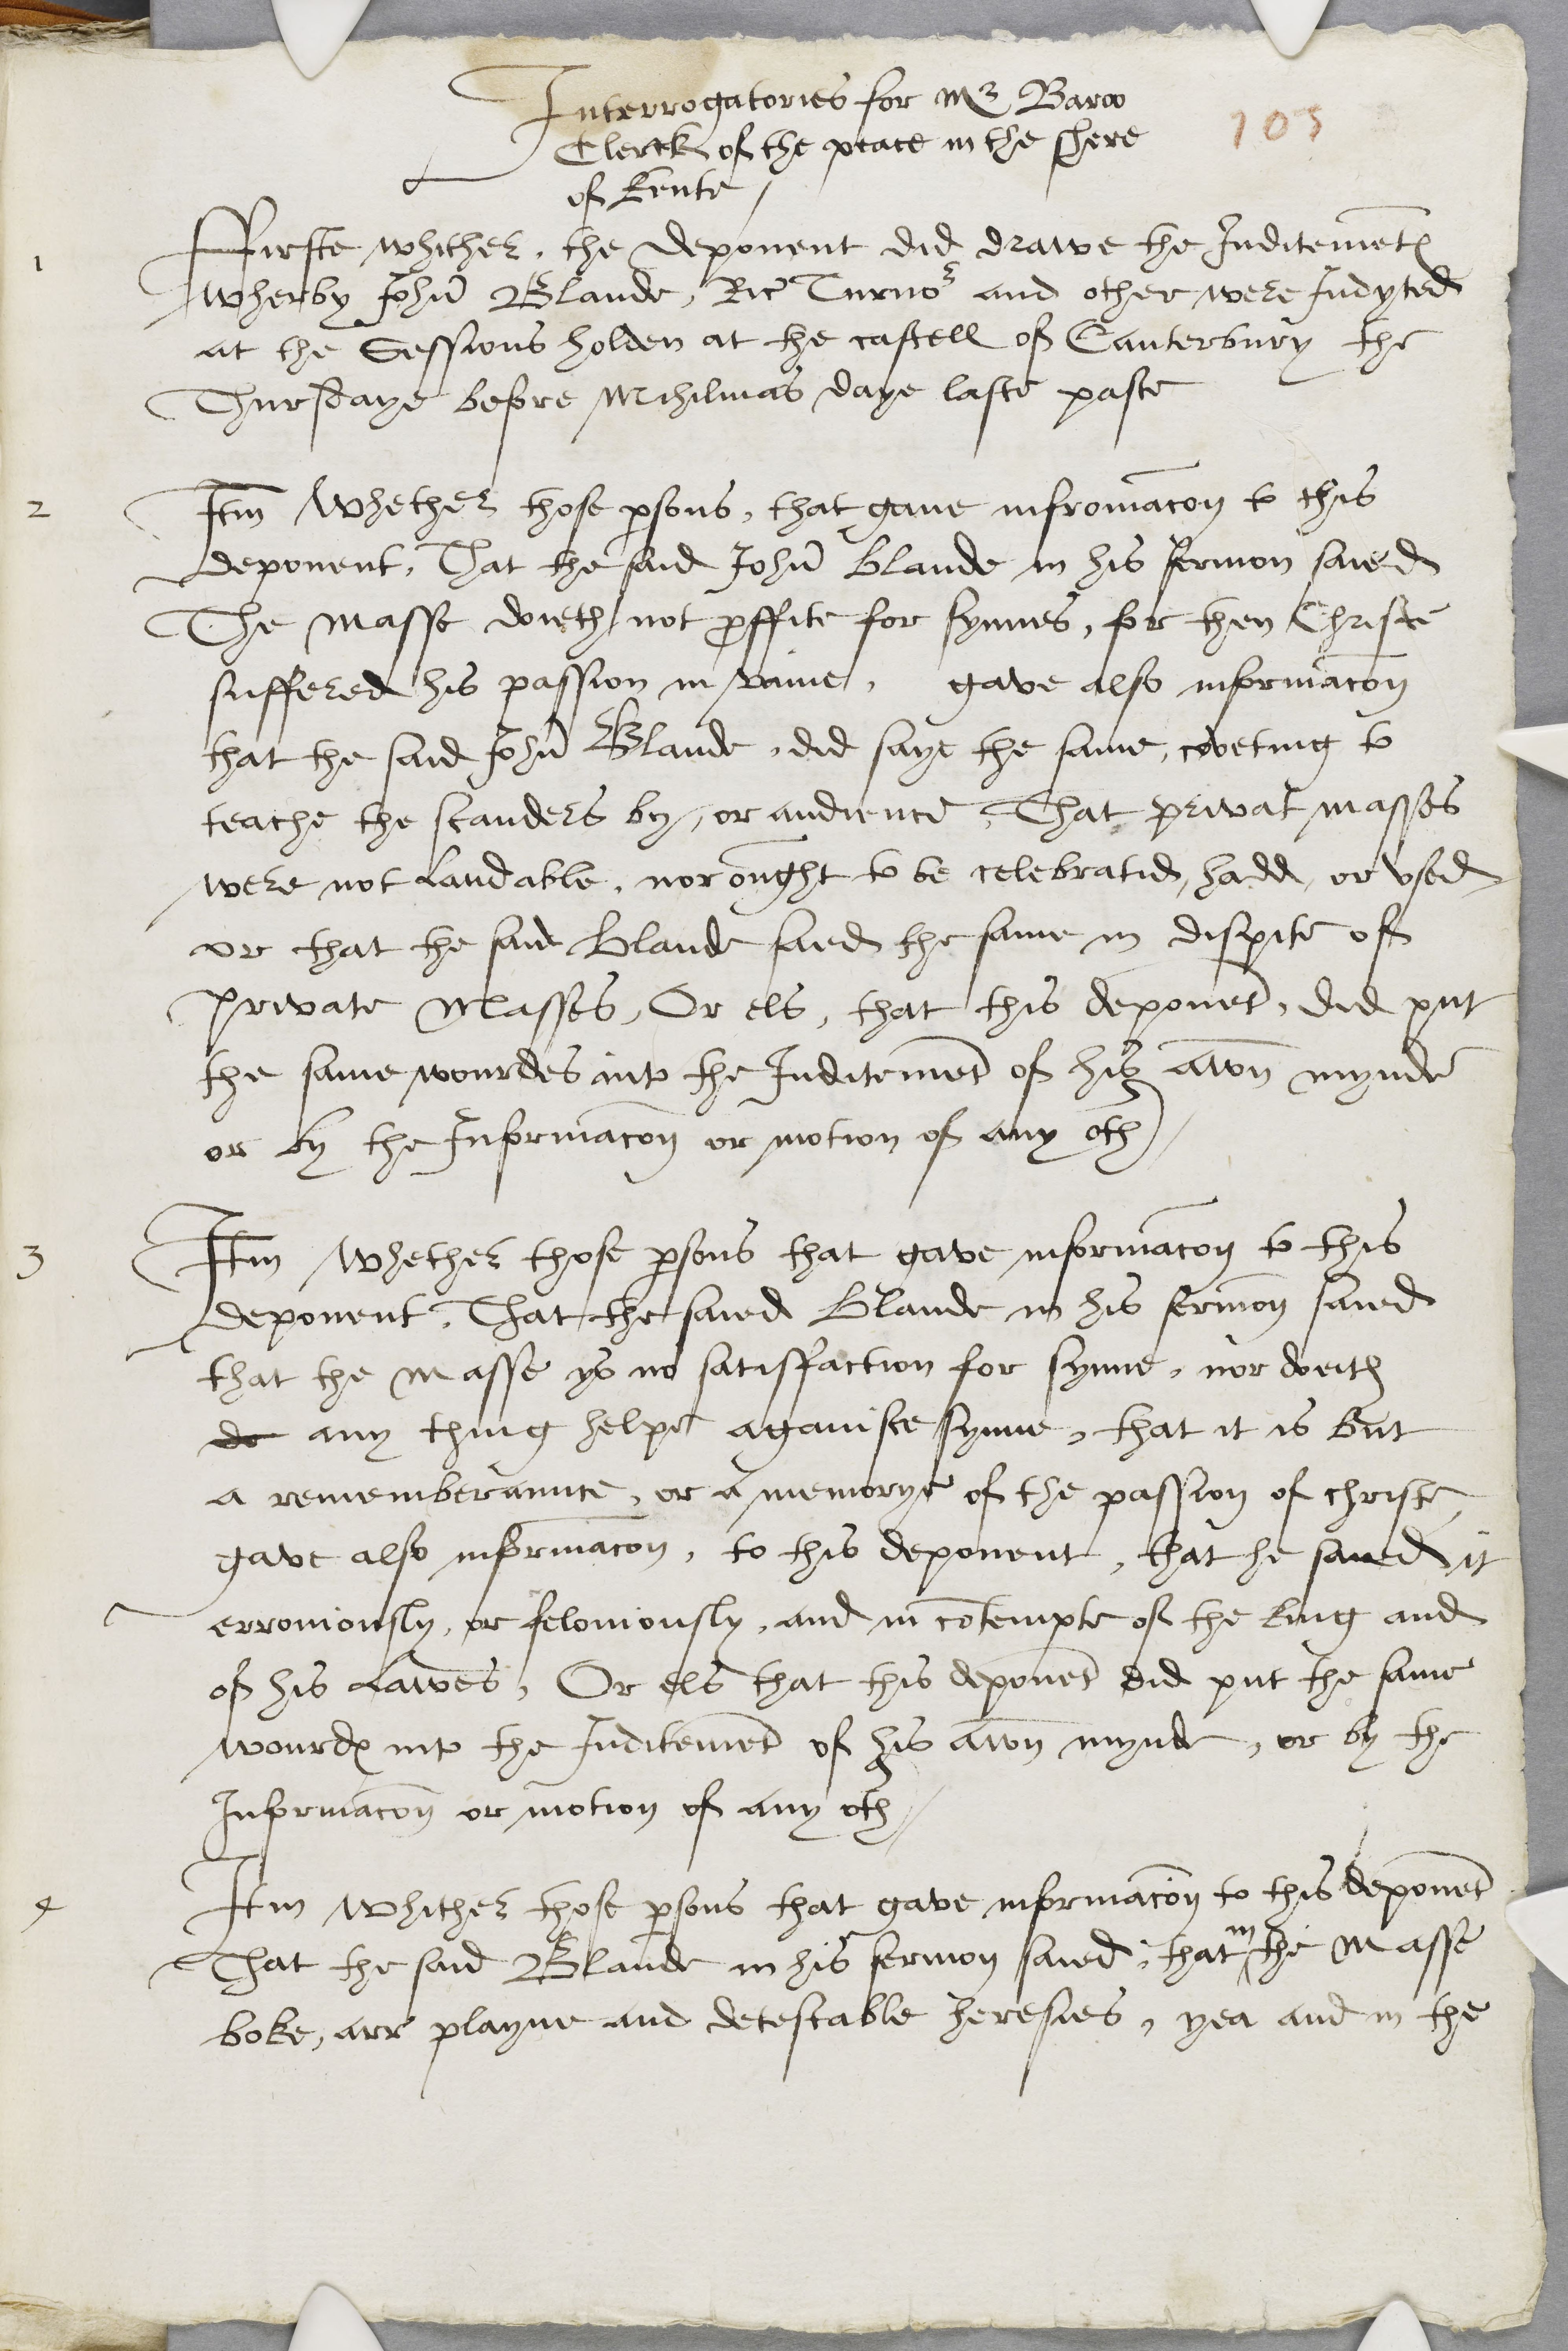 Interrogatories for Mr Baroo
105
Clerck of the peace in the shere
of Kente /
1 Ffirste whither, the deponent did drawe the Inditemet
wherby John Blande, Ric Turnor and other were Indyted
at the Sessions holden at the castell of Canterbury the
Thursdaye before Mihilmas daye laste paste
2 Itm Whether those psons, that gaue infromacon to this
deponent, That the said John Blande in his sermon saied
The Masse doieth not proffite for synnes, for then Christe
suffered his passion in vaine, gave also informacon
that the said John Blande, did saye the same, coveting to
teache the standers by, or audience, That privat masses
were not laudable, nor ought to be celebratid, hadd, or vsed
or that the said Blande saed the same in dispite of
private Masses, Or els, that this deponet, did put
the same wourdes into the Inditemet of his awn mynde
or by the Informacon or motion of any oth /
3 Itm Whether those psons that gave informacon to this
deponent, That the saied Blande in his sermon saied
that the Masse ys no satisfaction for synne, nor doeith
do any thing helpe aganiste synne, that it is but
a rememberannce, or a memorye of the passion of christe,
gave also informacon, to this deponent, that he saied it
erroniously, or feloniously, and in cotempte of the king and
of his Lawes, Or els that this deponet did put the same
wourdes into the Inditemet of his awn mynde, or by the
Informacon or motion of any oth /
4 Itm Whither those psons that gave informacon to this deponet
That the said Blande in his sermon saied, that in the Masse
boke, arr playne and detestable heresies, yea and in the